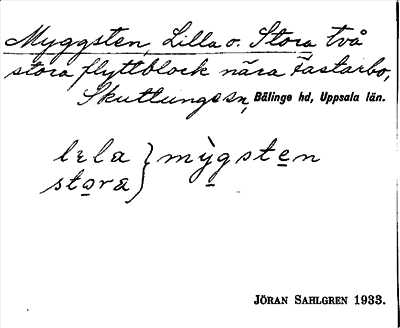 Myggsten, Lilla o. Stora två
stora flyttblock nära Fastarbo,
Skuttunge sn, Bälinge hd, Uppsala län.
lɛla } mỳgsten
stora
JÖRAN SAHLGREN 1933.